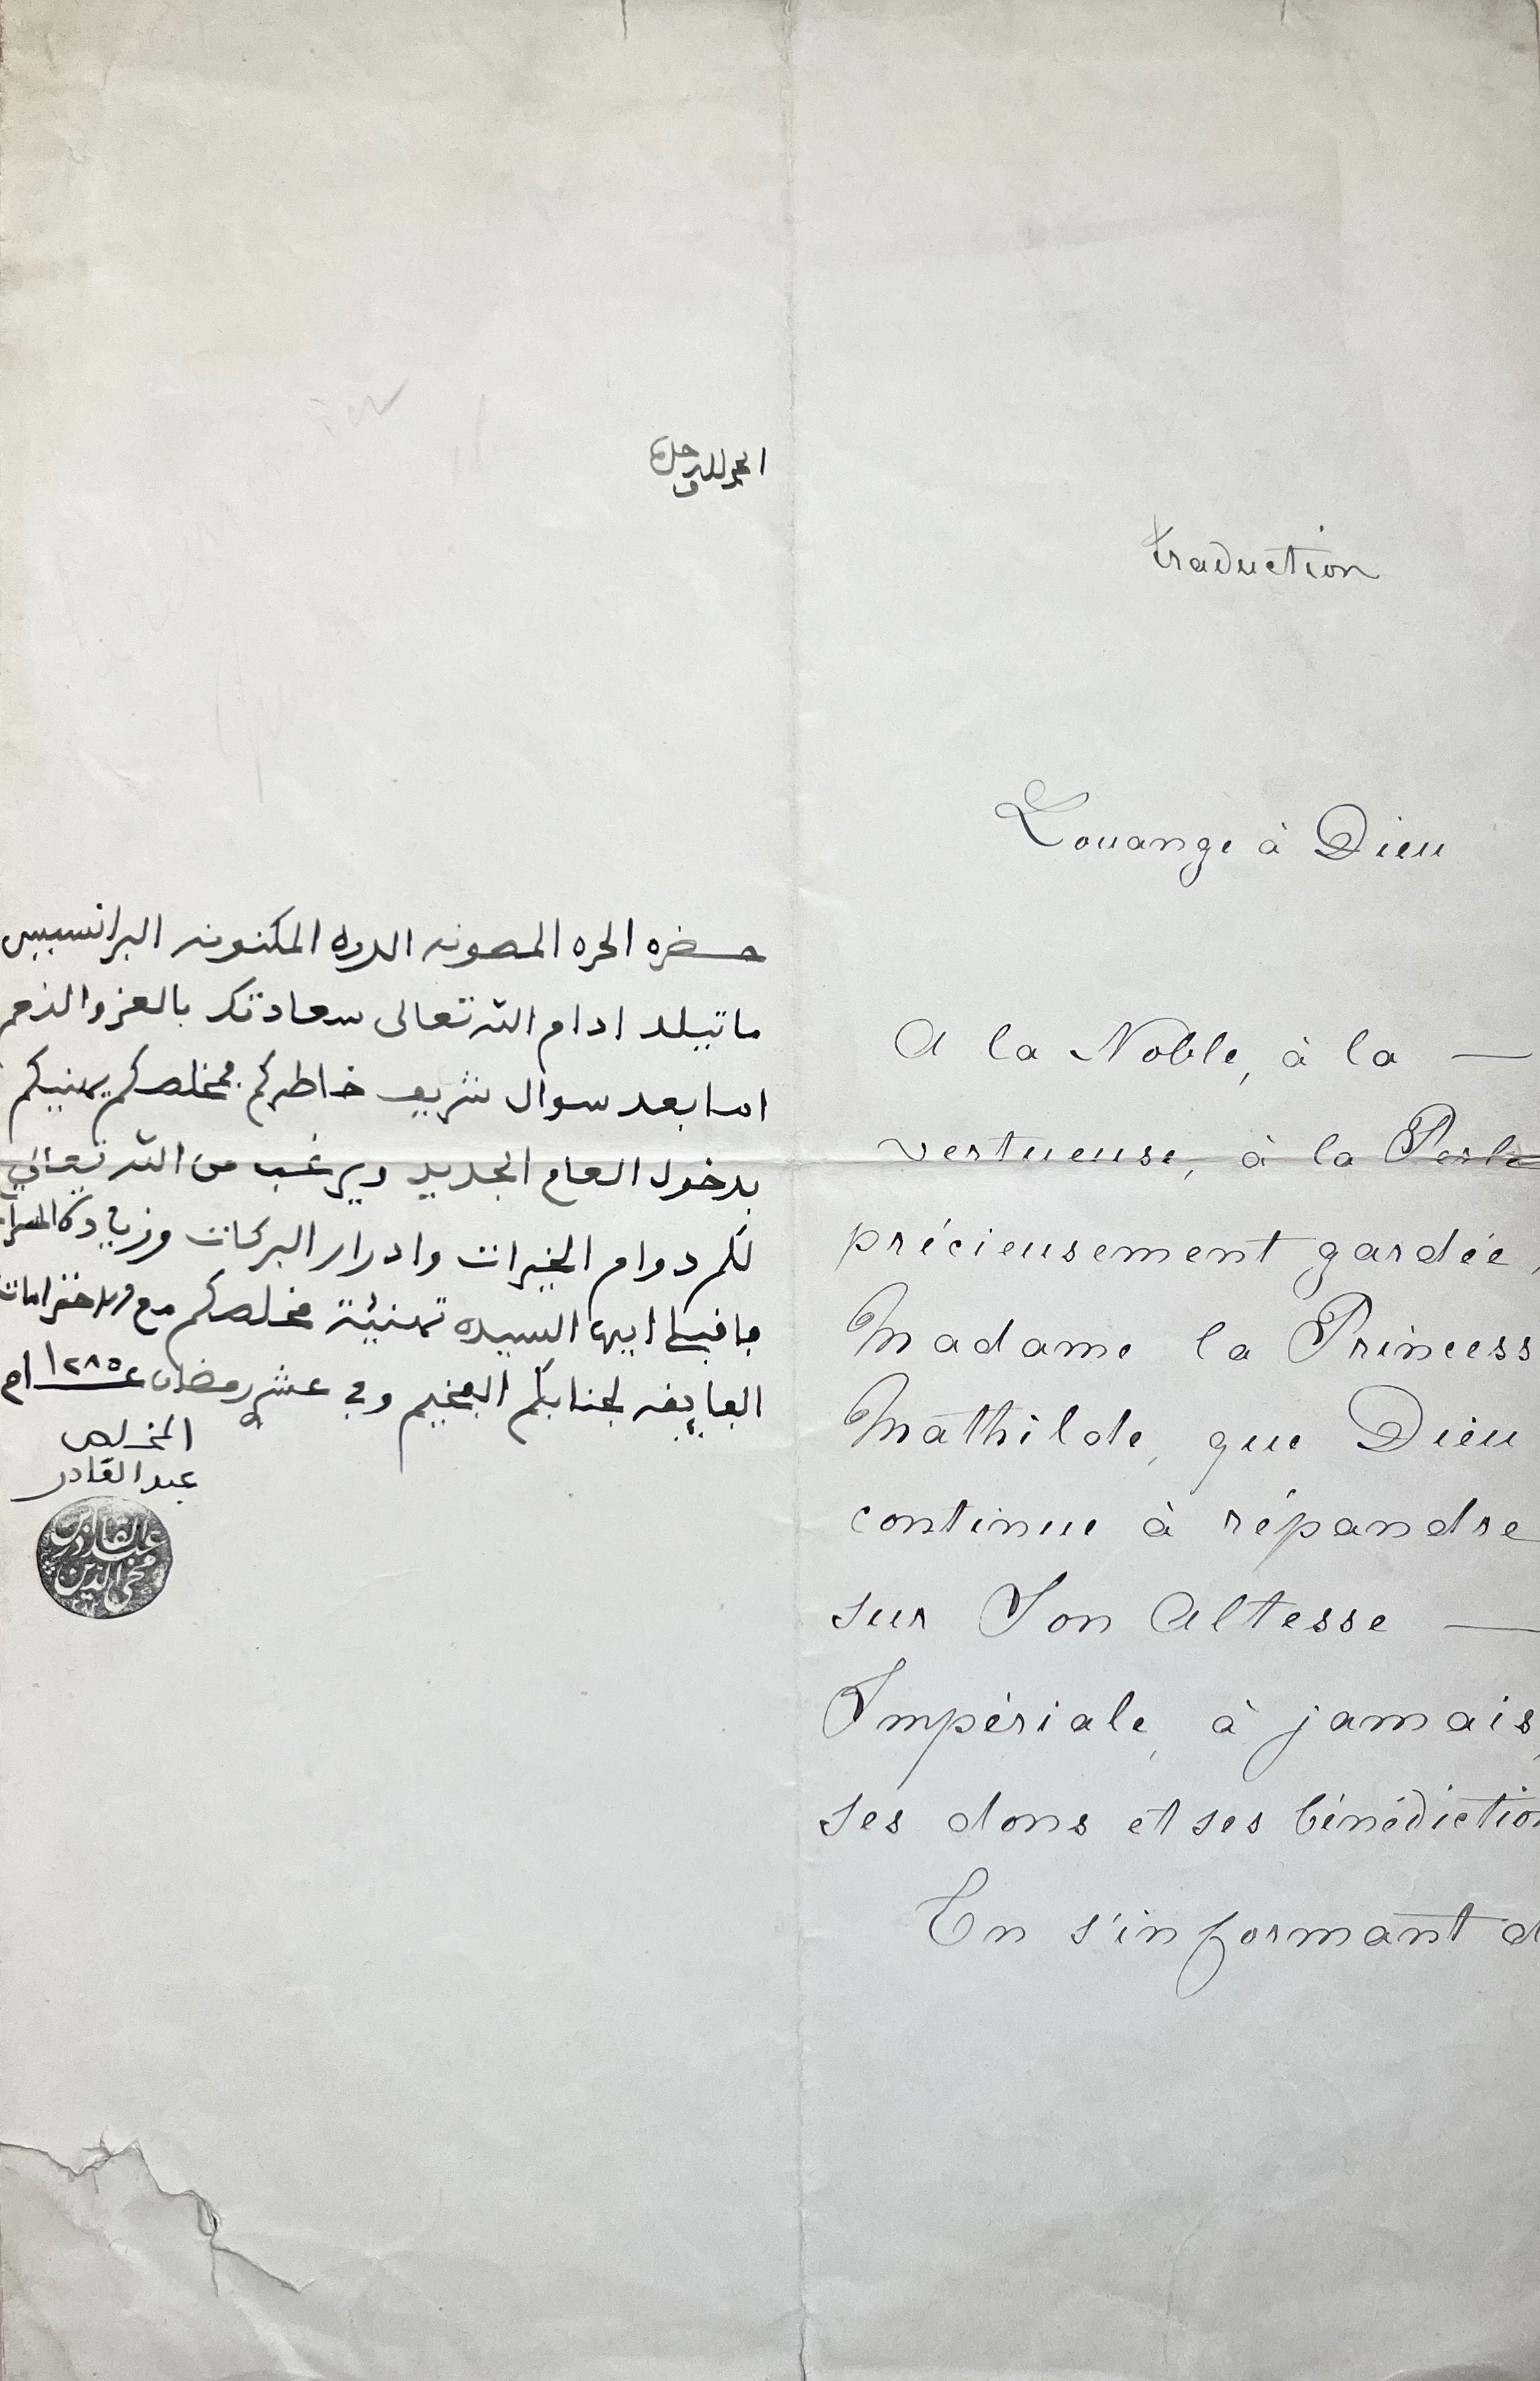 الحمد لله وحده
حضره الحره المصونه الدره المكنونه البرانسيس
ماتيلد ادام الله تعالى سعادتكم بالعز والنعم
اما بعد سوال شريف خاطركم فمخلصكم يهنيكم
بدخول العام الجديد ويرغب من الله تعالي
لكم دوام الخيرات وادرار البركات وزيادة المسرات
فاقبلي ايها السيده تهنيئة مخلصكم مع الاحترامات
الفايقه لجنابكم الفخيم وفي عشر رمضان ١٢٨٥
المخلص
عبد القادر
عبد القادر بن
محي الدين
traduction
Louange à Dieu
A la Noble, à la —
vertueuse, à la Perle
précieusement gardée,
Madame la Princess
Mathilde, que Dieu
continue à répandre
sur Son Altesse —
Impériale, à jamais,
ses dons et ses bénédiction
En s'informant d